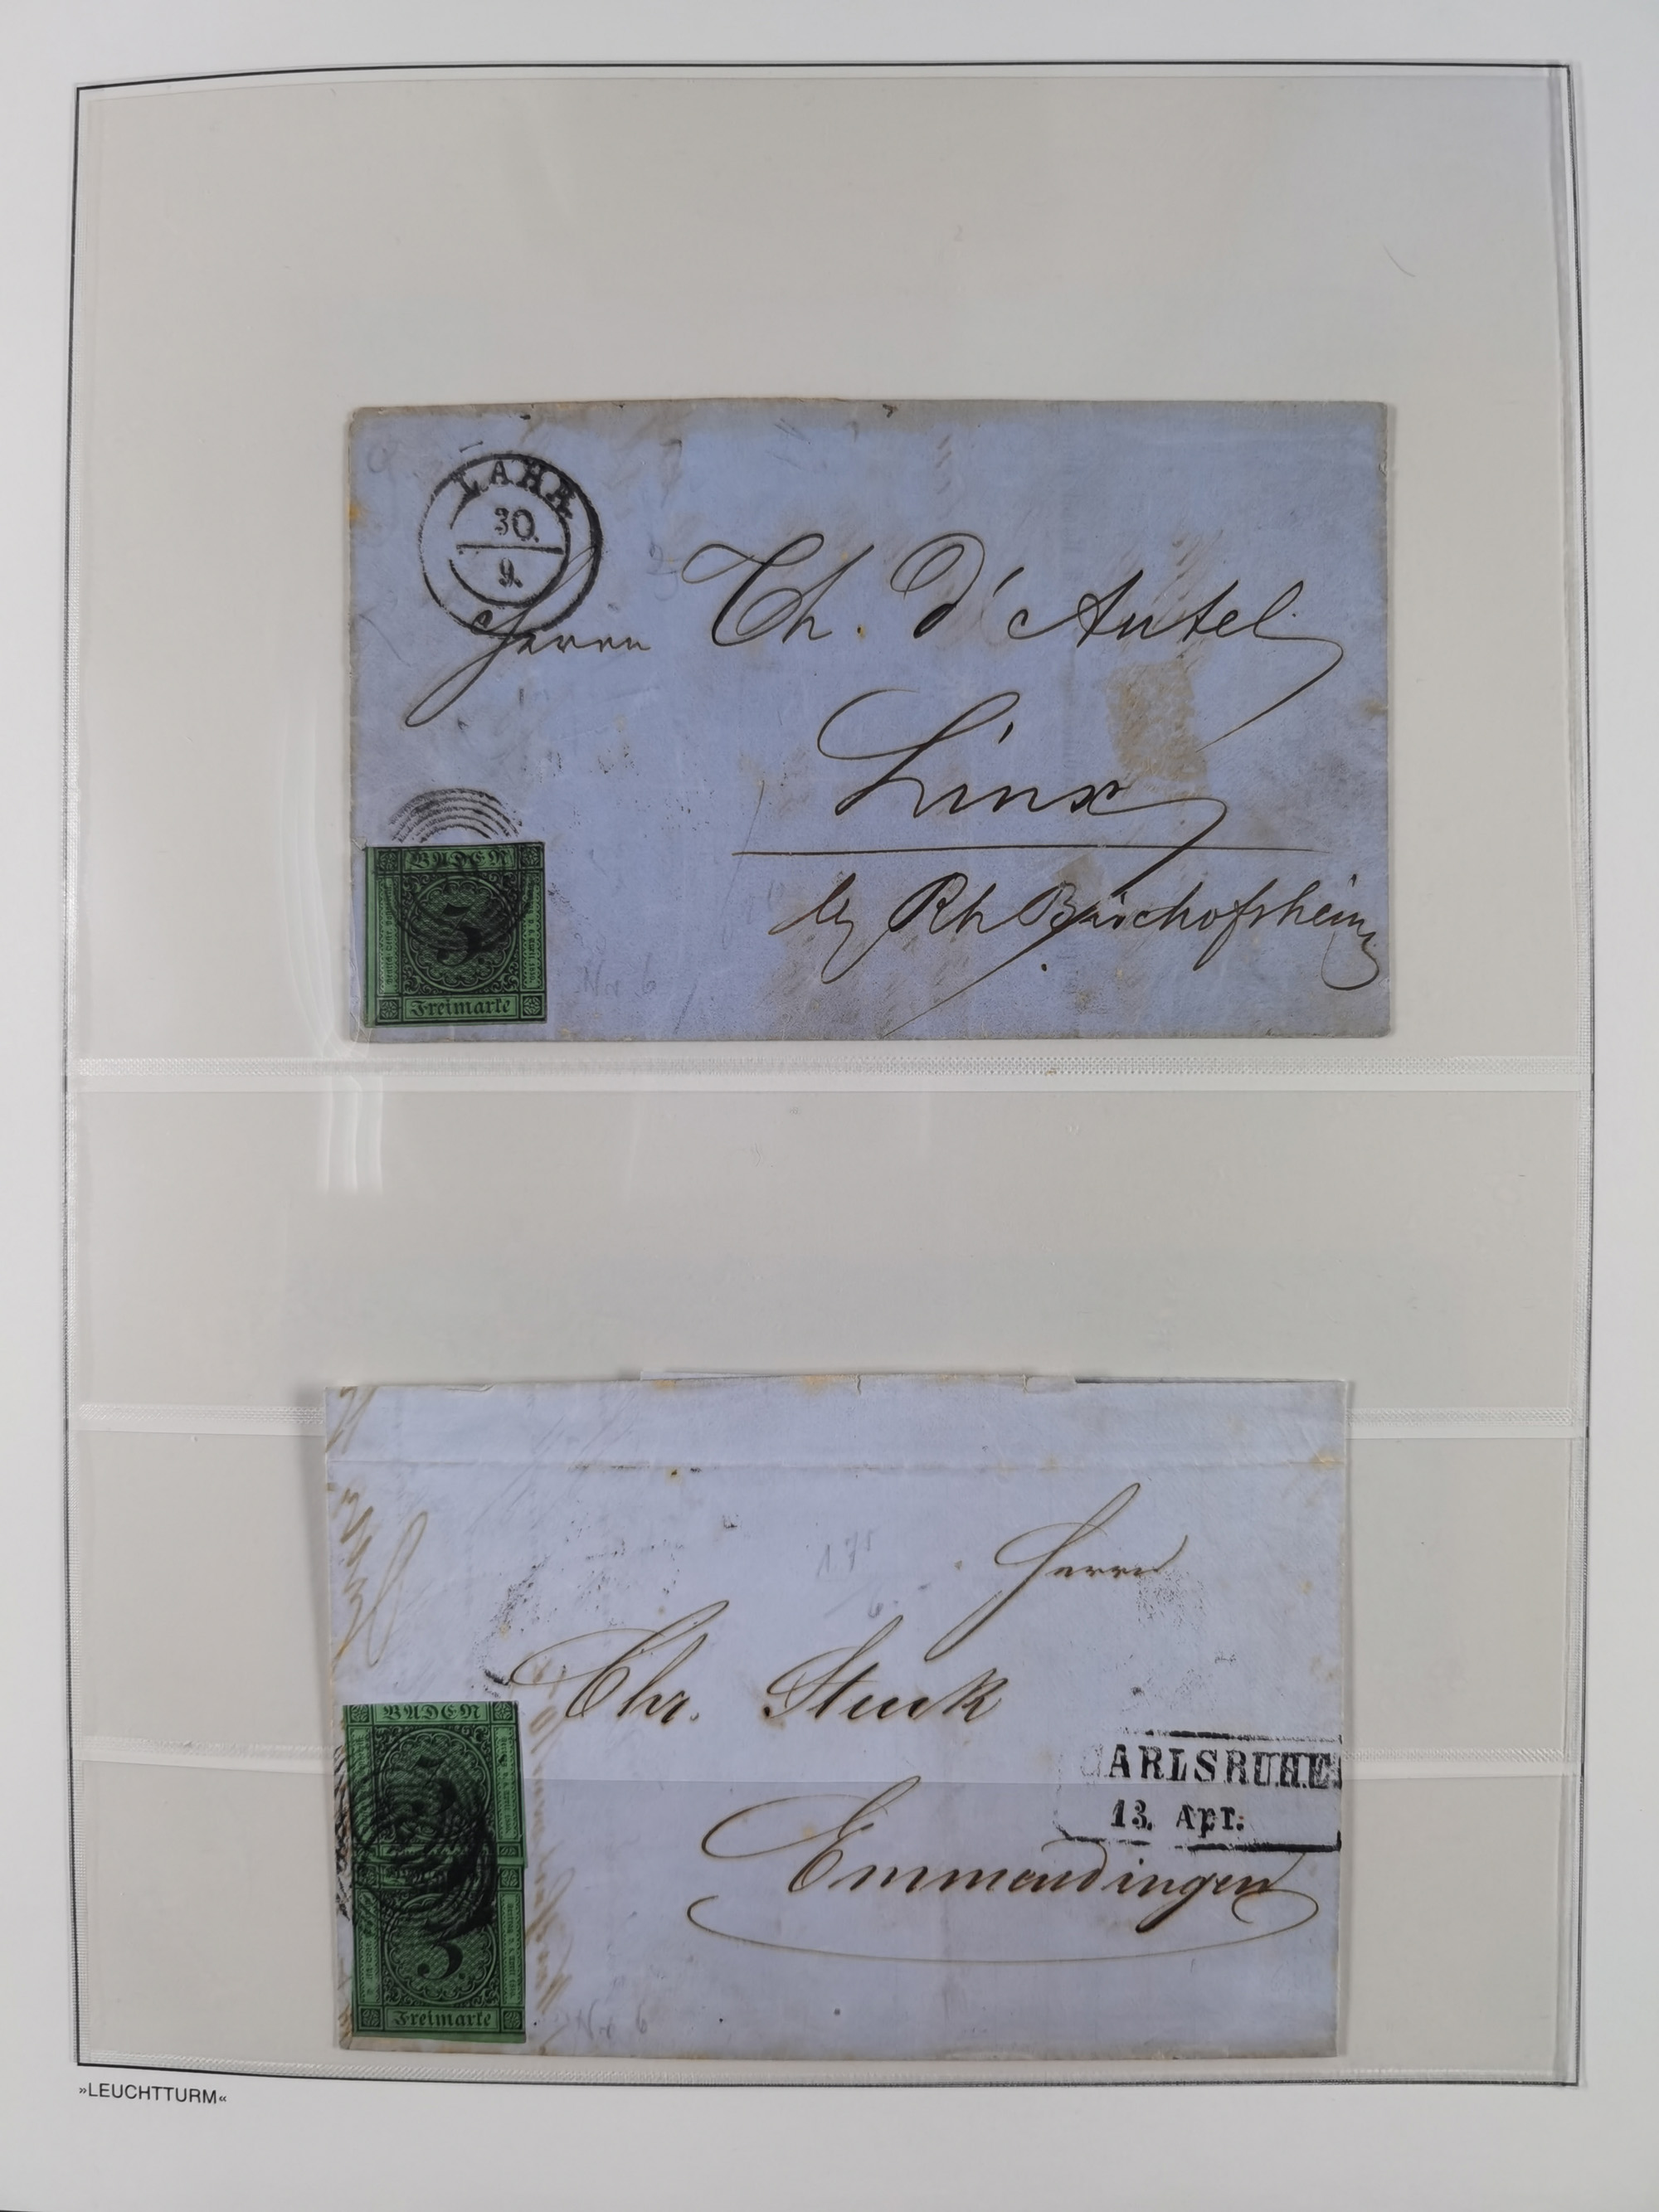 LAHR
30.
9.
Herrn Th. d'Autel
Linx
by Rh Bischofsheim
BADEN
3
Freimarke
Nr 6
Herrn
Chr. Stuck
CARLSRUHE
13. Apr.
Emmendingen
BADEN
3
Freimarke
Nr 6
»LEUCHTTURM«